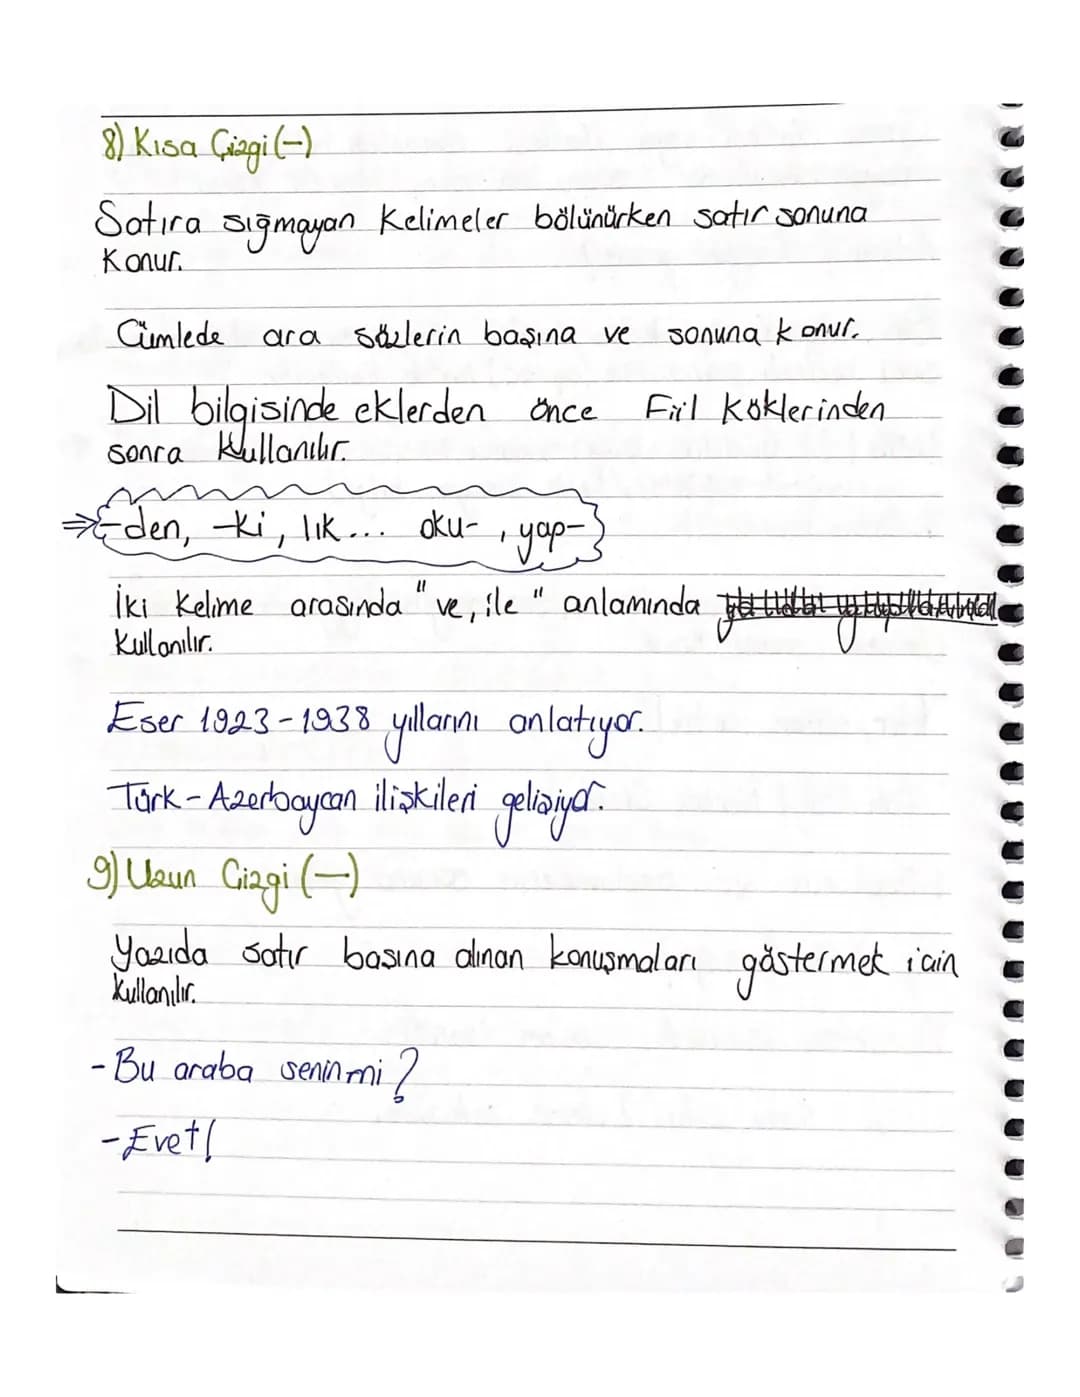 8) Kısa Çizgi (-)
Satıra sığmayan kelimeler bölünürken satır sonuna
Konur.
Cümlede ara sözlerin başına ve sonuna konur.
Dil bilgisinde eklerden önce Fiil Köklerinden
sonra Kullanılır.
⇒ -den, -ki, lık... oku-, yap-
İki Kelime arasında "ve, ile" anlamında
Kullanılır.
Eser 1923-1938 yıllarını anlatıyor.
Türk-Azerbaycan ilişkileri gelişiyor.
9) Uzun Çizgi (—)
Yazıda satır başına alınan konuşmaları göstermek için
kullanılır.
- Bu araba senin mi?
- Evet!